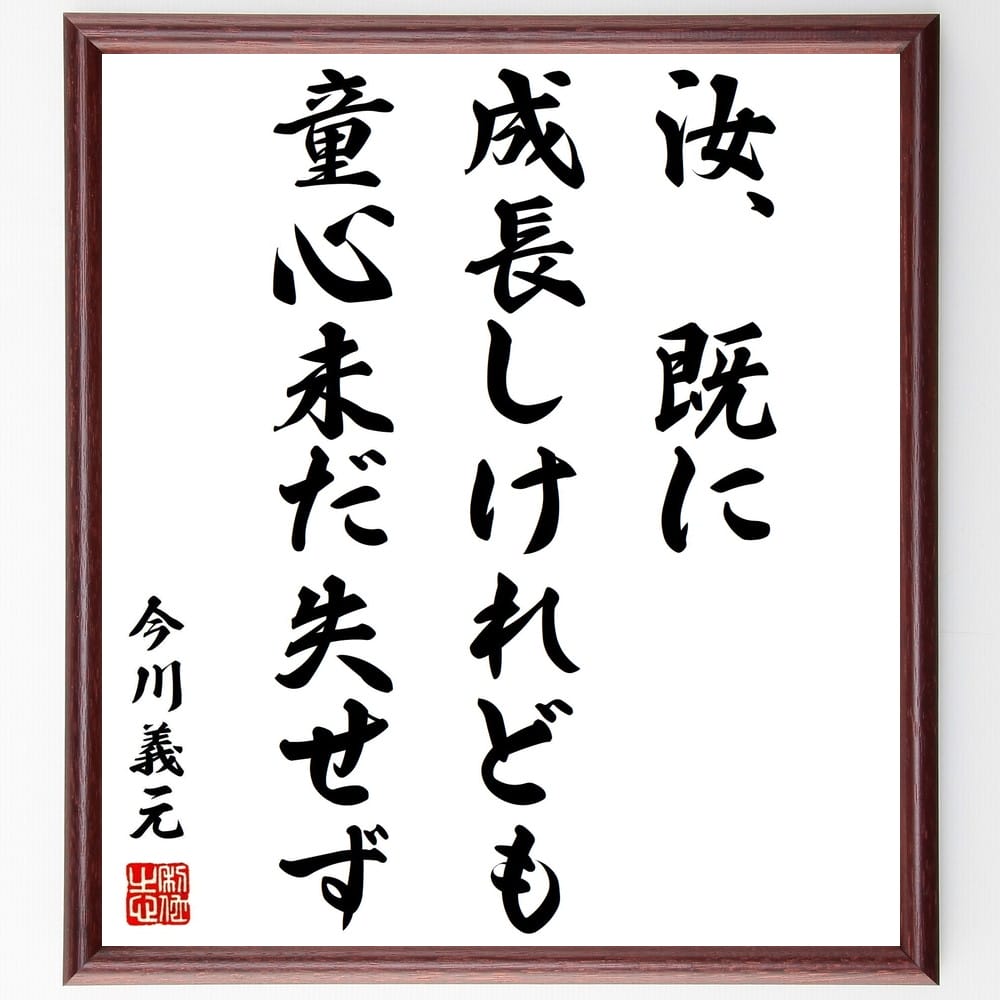 汝、既に
成長しけれども
童心未だ失せず
今川義元